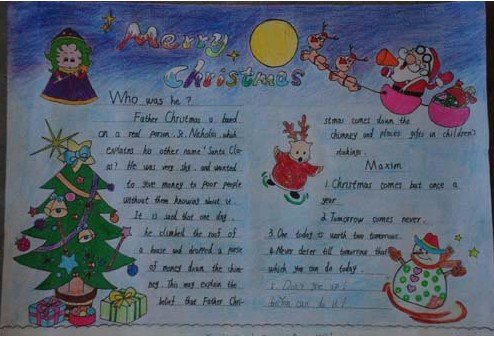 Merry
Christmas
Who was he?
Father Christmas is based
on a real person, St. Nicholas, which
explains his other name 'Santa Cla-
us'? He was very shy and wanted
to give money to poor people
without them knowing about it.
It is said that one day,
he climbed the roof of
a house and dropped a purse
of money down the chim-
ney. This may explain the
belief that Father Chri-
stmas comes down the
chimney and places gifts in children's
stockings.
Maxim
1. Christmas comes but once a
year.
2. Tomorrow comes never.
3. One today is worth two tomorrows.
4. Never defer till tomorrow that
which you can do today.
5. Don't give up!
can do it!